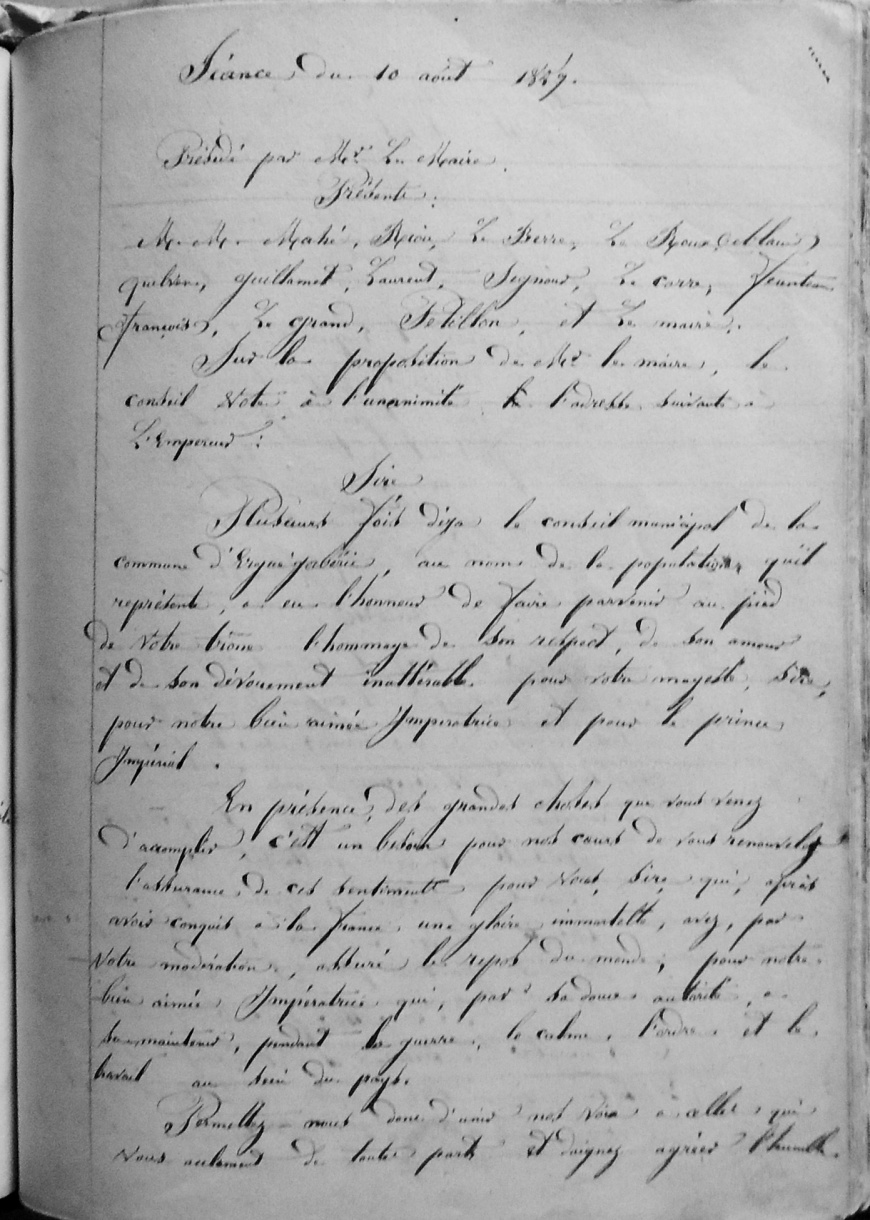 Séance du 10 août 18 9.
Présidé par Mr Le Maire.
Présents.
M. M. Mahé, Riou, Le Berre, Le Roux,
quelven, guillamet, Laurent, Seznec, Le corre,
françois, Le grand, Petillon, et Le maire.
Sur la proposition de Mr le maire, le
conseil vote à l'unanimité l'adresse suivante a
L'Empereur :
Sire
Plusieurs fois déja le conseil municipal de la
commune d'Ergué-gabéric, au nom de la population qu'il
représente, a eu l'honneur de faire parvenir au pied
de votre trône l'hommage de son respect, de son amour
et de son dévouement inaltérable pour votre majesté, Sire,
pour notre bien aimée Impératrice et pour le prince
Impérial.
En présence des grandes choses que vous venez
d'accomplir, c'est un besoin pour nos cœurs de vous renouveler
l'assurance de ces sentiments pour vous, Sire, qui, après
avoir conquis a la france une gloire immortelle, avez, par
votre modération, assuré le repos du monde ; pour notre
bien aimée Impératrice qui, par sa douce autorité, a
su maintenir, pendant la guerre, le calme, l'ordre et le
travail au sein du pays.
Permettez-nous donc d'unir nos voix a celles qui
vous acclament de toutes parts et daignez agréer l'humble